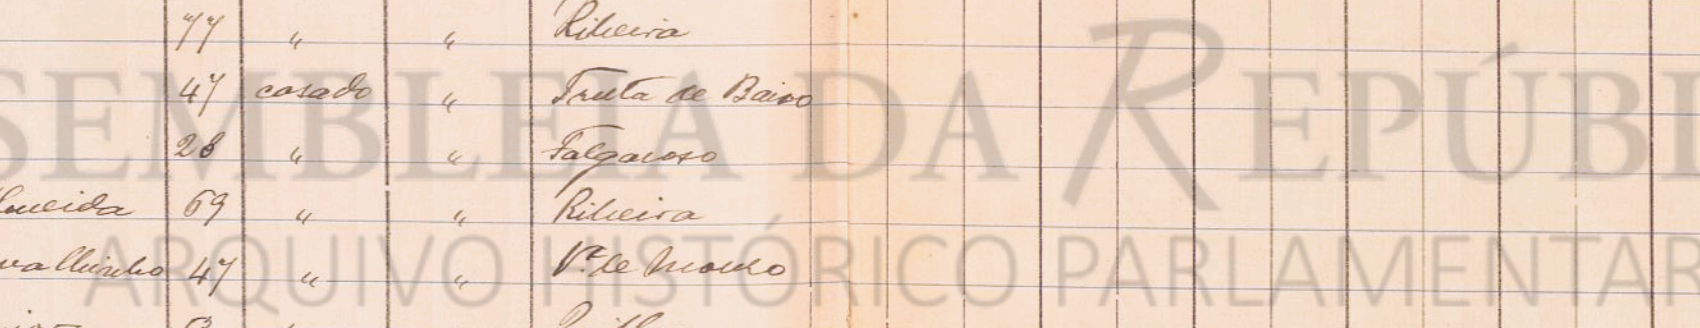 77 " " Ribeira
47 casado " Truta de Baixo
28 " " Falgaroso
lmeida 69 " " Ribeira
valhinho 47 " " V.ª de Mouro
ASSEMBLEIA DA REPÚBLI
ARQUIVO HISTÓRICO PARLAMENTAR